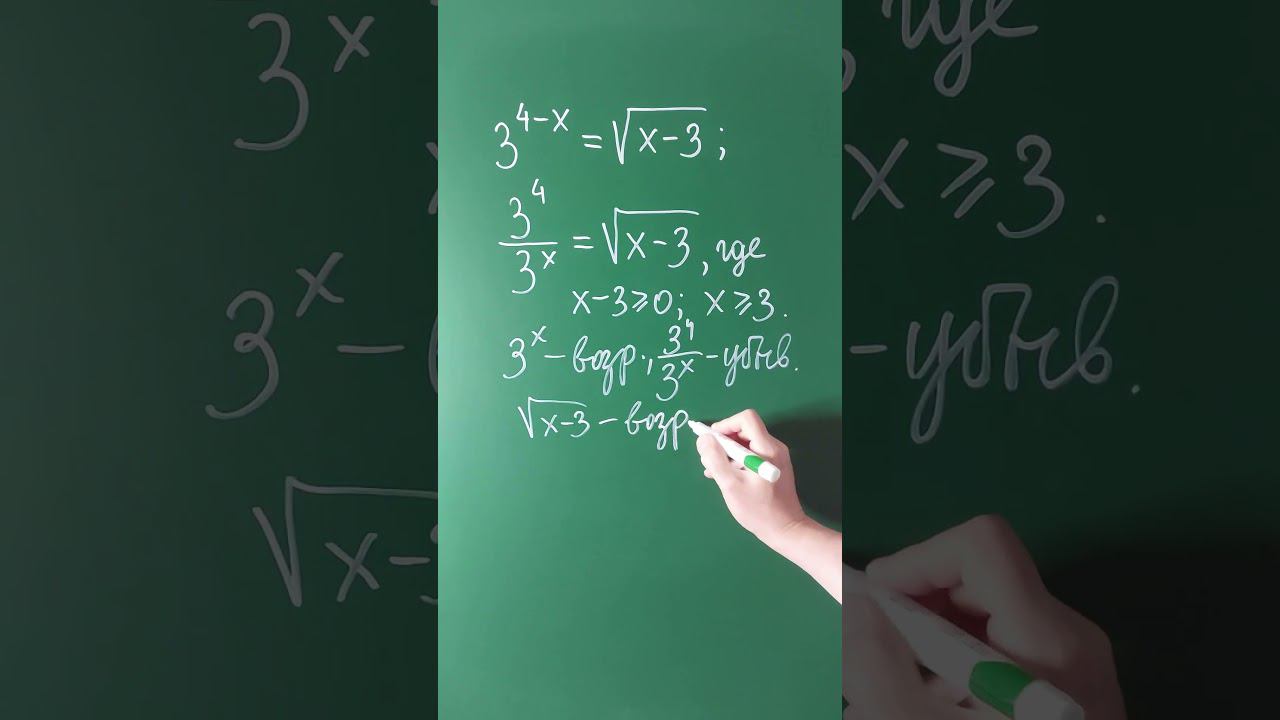 3^{4-x} = √(x-3) ;
3^4/3^x = √(x-3) , где
x-3 ⩾ 0; x ⩾ 3.
3^x - возр., 3^4/3^x - убыв.
√(x-3) - возр